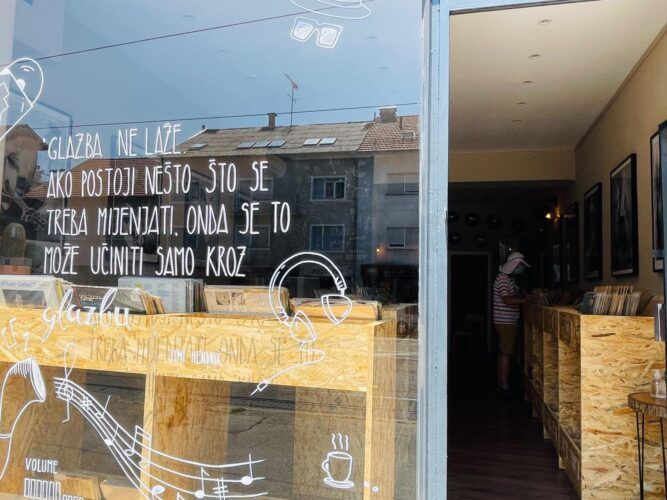 "GLAZBA NE LAŽE.
AKO POSTOJI NEŠTO ŠTO SE
TREBA MIJENJATI, ONDA SE TO
MOŽE UČINITI SAMO KROZ
glazbu"
JIMI HENDRIX
VOLUME